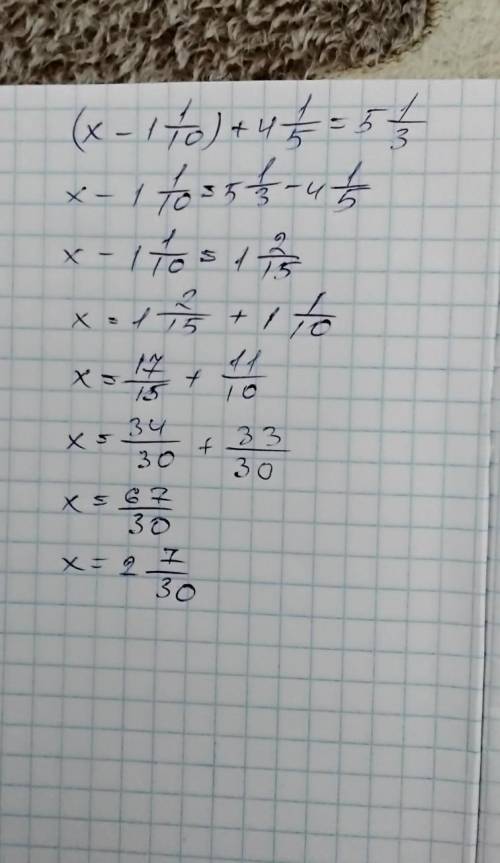 (x - 1 1/10) + 4 1/5 = 5 1/3
x - 1 1/10 = 5 1/3 - 4 1/5
x - 1 1/10 = 1 2/15
x = 1 2/15 + 1 1/10
x = 17/15 + 11/10
x = 34/30 + 33/30
x = 67/30
x = 2 7/30